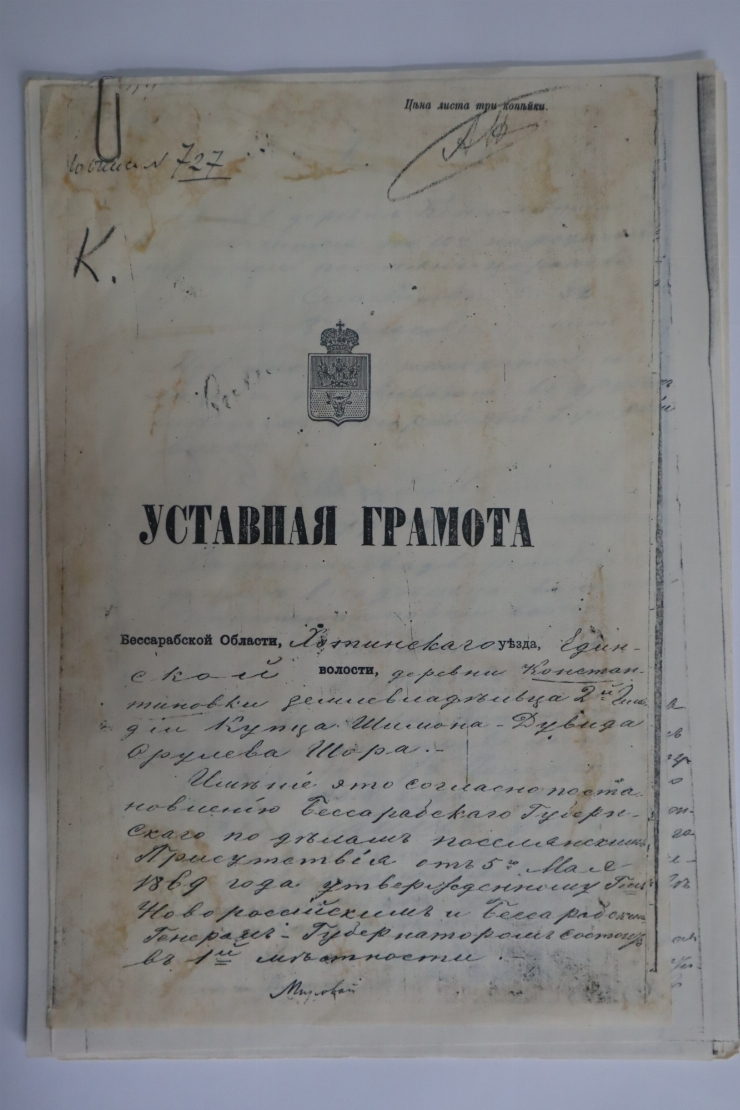 Цѣна листа три копѣйки.
727
К.
УСТАВНАЯ ГРАМОТА
Бессарабской Области, Хотинскаго уѣзда, Един-
ской волости, деревни Констан-
тиновки землевладѣльца 2й Гиль
діи Купца Шимона-Дувида
Срулева Шора.-
Имѣніе это согласно поста
новленію Бессарабскаго Губерн-
скаго по дѣламъ поселянскимъ
Присутствія отъ 5го Мая
1869 года утвержденному Гмъ
Новороссійскимъ и Бессарабскимъ
Генералъ-Губернаторомъ состоитъ
въ 1й мѣстности.-
Мировой